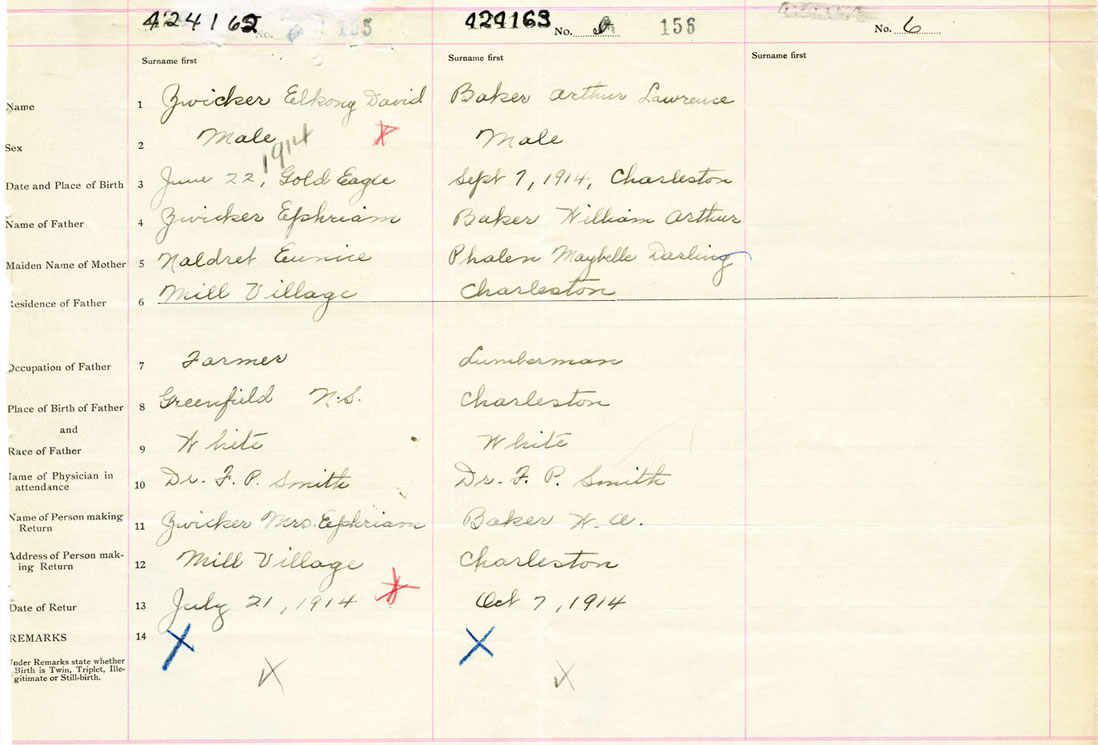 424162 No. 155
424163 No. 156
No. 6
Surname first
Surname first
Surname first
Name 1 Zwicker Elkong David Baker Arthur Lawrence
Sex 2 Male Male
1914
Date and Place of Birth 3 June 22, Gold Eagle Sept 7, 1914, Charleston
Name of Father 4 Zwicker Ephriam Baker William Arthur
Maiden Name of Mother 5 Naldret Eunice Phalen Maybelle Darling
Residence of Father 6 Mill Village Charleston
Occupation of Father 7 Farmer Lumberman
Place of Birth of Father 8 Greenfield N.S. Charleston
and
Race of Father 9 White White
Name of Physician in
attendance 10 Dr. F. P. Smith Dr. F. P. Smith
Name of Person making
Return 11 Zwicker Mrs. Ephriam Baker W. A.
Address of Person mak-
ing Return 12 Mill Village Charleston
Date of Retur 13 July 21, 1914 Oct 7, 1914
REMARKS 14 X X
Under Remarks state whether
Birth is Twin, Triplet, Ille-
gitimate or Still-birth.